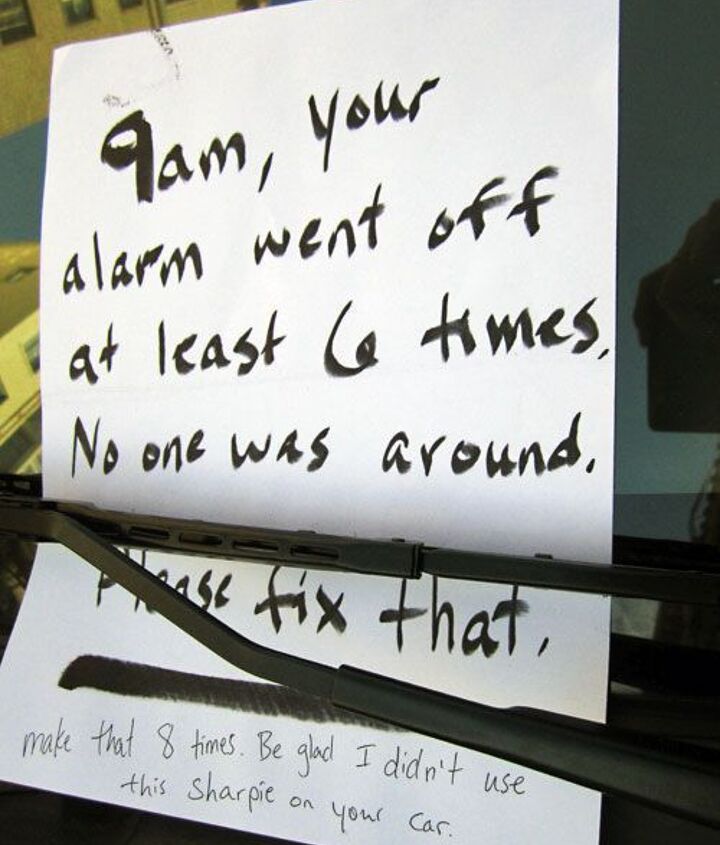 9am, your
alarm went off
at least 6 times.
No one was around.
Please fix that.
make that 8 times. Be glad I didn't use
this Sharpie on your car.